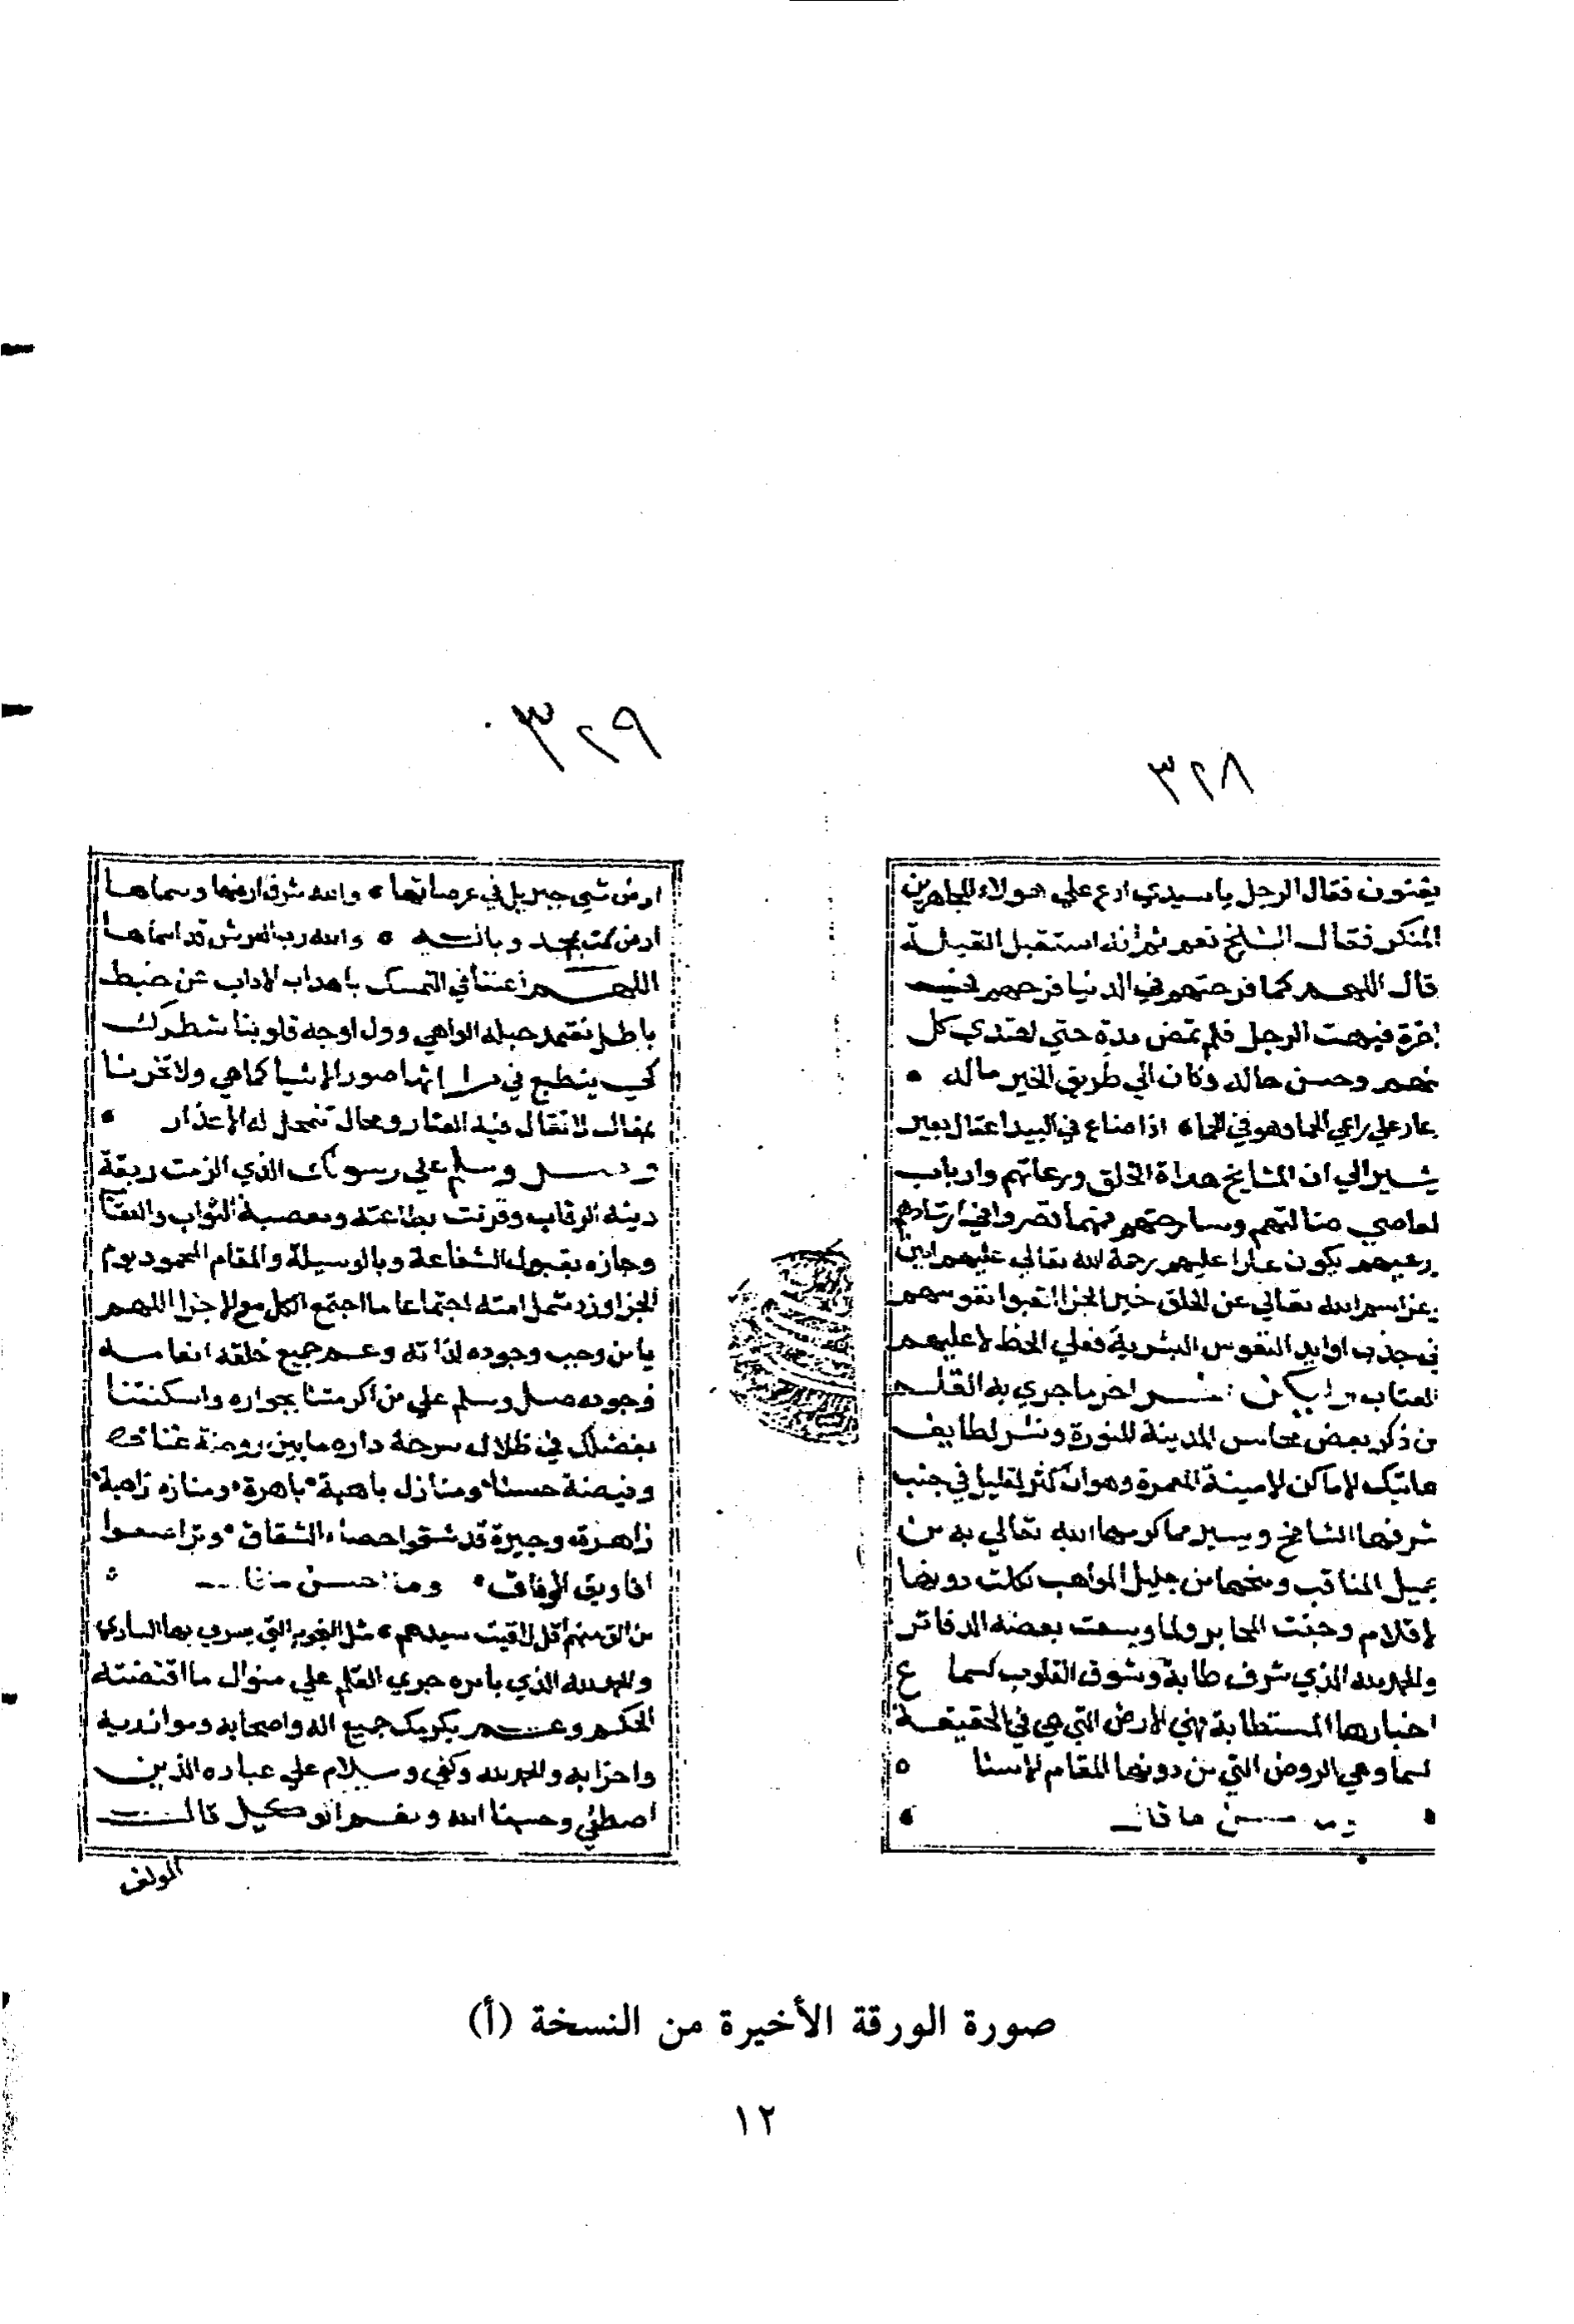 ٣٢٨
يغنون فقال الرجل يا سيدي ادع علي هولاء المجاهرين
المنكر فقال الشيخ نعم ثم انه استقبل القبلة
قال اللهم كما فرحتهم في الدنيا فرحهم في
اخرة فبهت الرجل فلم تمض مدة حتي اهتدي كل
منهم وحسن حاله وكان الي طريق الخير ماله
عار علي راعي الحما وهو في الحما اذا ضاع في البيدا عقال بعير
يشير الي ان المشايخ هداة الخلق ورعاتهم وارباب
لمعاصي ضالتهم وسارحتهم فمهما قصروا في ارشادهم
ورعيهم يكون عارا عليهم رحمة الله تعالي عليهم
الله تعالي عن الخلق خير الجزا اتعبوا نفوسهم
في جذب اوابد النفوس البشرية فعلي الحظ لا عليهم
العتاب اخر ما جري به القلم
من ذكر بعض محاسن المدينة المنورة ونشر لطايف
هاتيك الاماكن الامينة المعمرة وهو ان كثر لقليل في جنب
شرفها الشامخ ويسير مما كرمها الله تعالي به من
جميل المناقب ومنحها من جليل المواهب لكلت دونها
لاقلام وجفت المحابر ولما وسعت بعضه الدفاتر
والحمد لله الذي شرف طابة وشوق القلوب لسما ع
اخبارها المستطابة فهي الارض التي هي في الحقيقة
لسما وهي الروض التي من دونها المقام الاسنا
حسن ما قال
٣٢٩
ارض مشي جبريل في عرصاتها والله شرف ارضها وسماها
والله رب العرش قد اسماها
اللهم اعنا في التمسك باهداب الاداب عن ضبط
باطل نعتمد حبله الواهي وول اوجه قلوبنا شطرك
كي ينطبع في صور الاشيا كما هي ولا تخزنا
فيه العثار ومحال تنمحل له الاعذار
وصل وسلم علي رسولك الذي الزمت ربقة
دينه الرقاب وقرنت بطاعته ومعصيته الثواب والعقاب
وجازه بقبول الشفاعة وبالوسيلة والمقام المحمود يوم
الجزا وزد شمل امته اجتماعا ما اجتمع الكل مع الاجزا اللهم
يا من وجب وجوده لذاته وعم جميع خلقه انعامه
وجوده صل وسلم علي من اكرمتنا بجواره واسكنتنا
بفضلك في ظلال سرحة داره ما بين روضة غنا
وغيضة حسنا ومنازل باهية باهرة ومنازه زاهية
زاهرة وجيرة قد شقوا عصا الشقاق وتراضعوا
افاويق الوفاق وما احسن ما قال
من تلق منهم تقل لاقيت سيدهم مثل النجوم التي يسري بها الساري
والحمد لله الذي بامره جري القلم علي منوال ما اقتضته
الحكم وعم بكرمك جميع اله واصحابه ومواليه
واحزابه والحمد لله وكفي وسلام علي عباده الذين
اصطفي وحسبنا الله ونعم الوكيل قال
المولف
صورة الورقة الأخيرة من النسخة (أ)
١٢